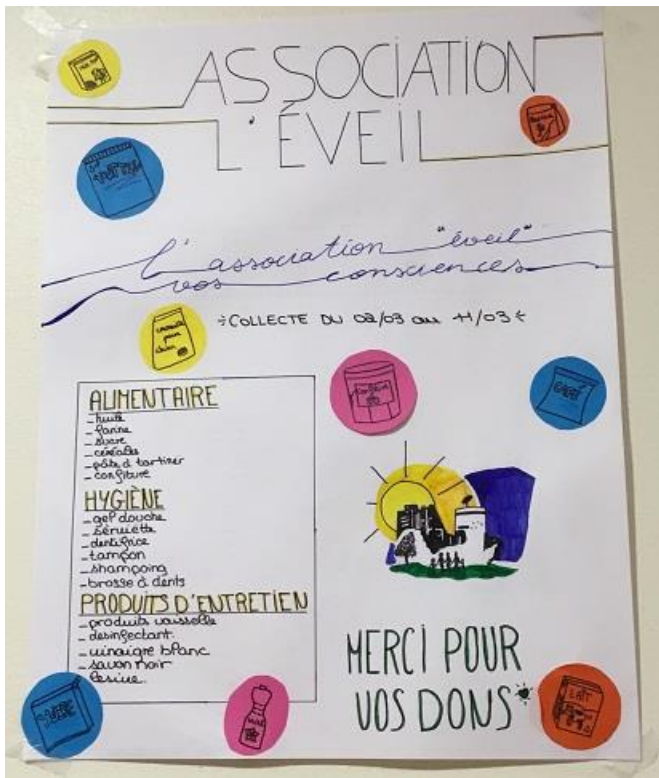 ASSOCIATION
L'ÉVEIL
l'association "éveil"
vos consciences
COLLECTE DU 02/03 au 11/03
croquette pour chien
confiture
ALIMENTAIRE
_ huile
_ farine
_ sucre
_ céréales
_ pâte à tartiner
_ confiture
HYGIÈNE
_ gel douche
_ serviette
_ dentifrice
_ tampon
_ shampoing
_ brosse à dents
PRODUITS D'ENTRETIEN
_ produits vaisselle
_ desinfectant
_ vinaigre blanc
_ savon noir
_ lesive
MERCI POUR
VOS DONS
SUCRE
HUILE
LAIT